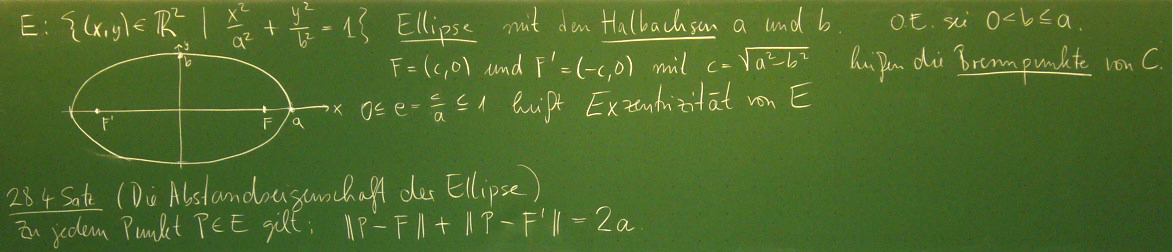 E: {(x,y) ∈ ℝ² | x²/a² + y²/b² = 1} Ellipse mit den Halbachsen a und b. O.E. sei 0<b≤a.
F=(c,0) und F'=(-c,0) mit c=√(a²-b²) heißen die Brennpunkte von C.
0≤e=c/a≤1 heißt Exzentrizität von E
y
b
x
F'
F
a
28.4 Satz (Die Abstandseigenschaft der Ellipse)
Zu jedem Punkt P∈E gilt: ‖P-F‖+‖P-F'‖=2a.